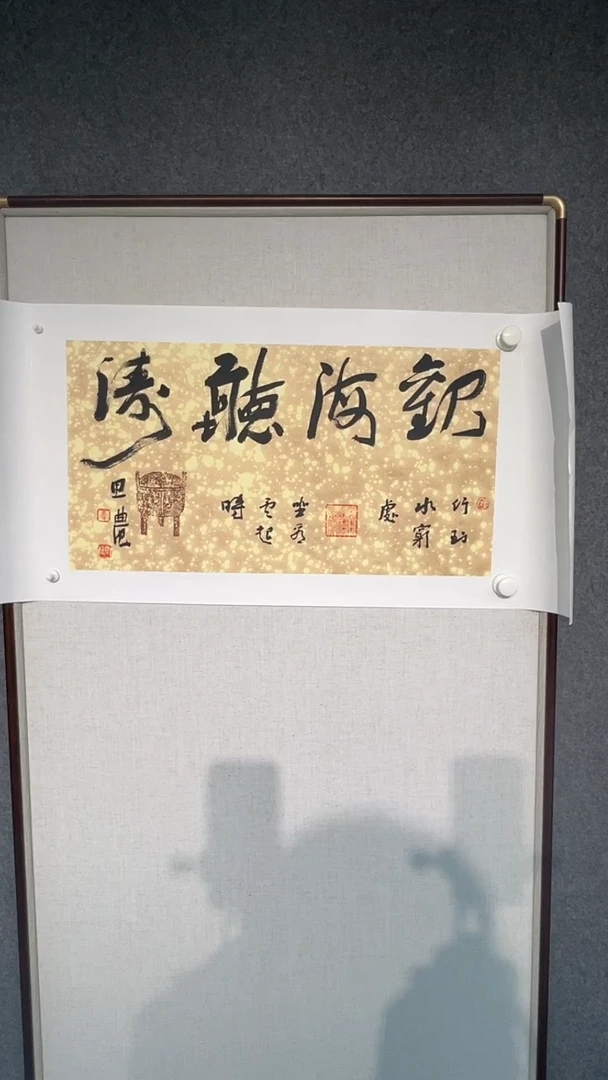 觀海聽濤
行到
水窮
處
坐看
雲起
時